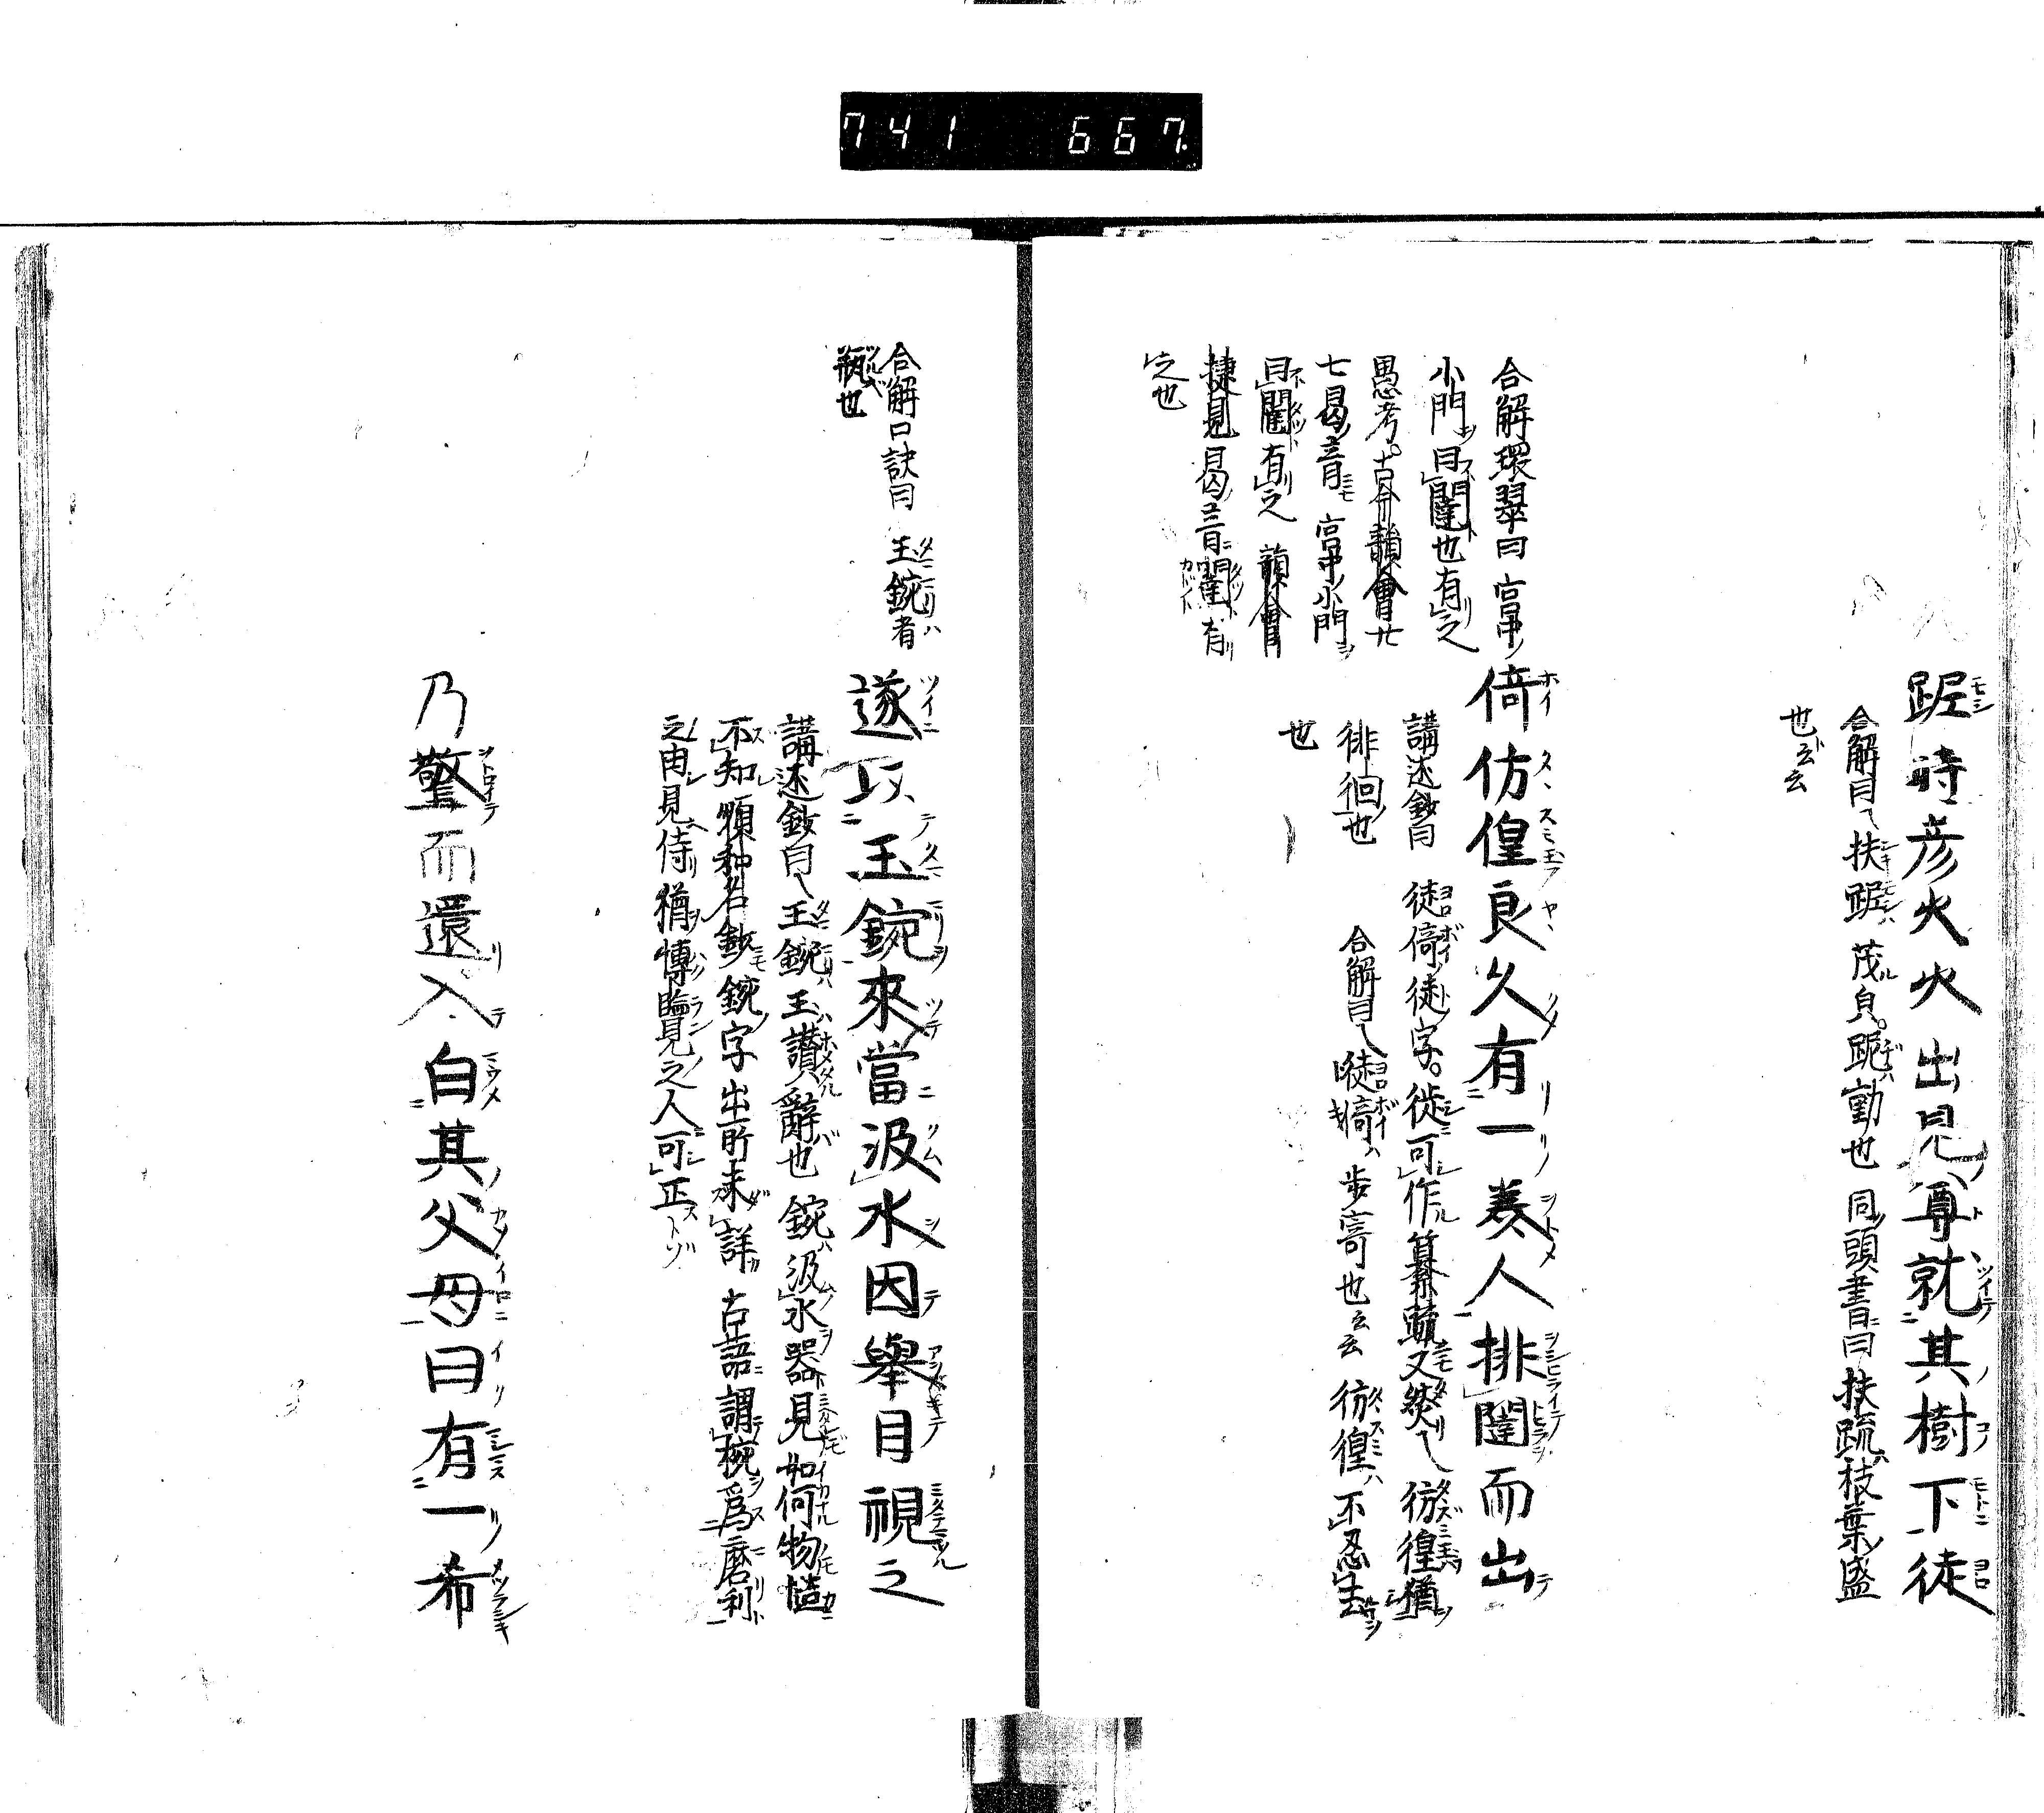 741 667
踞時彦火火出見尊就其樹下徒
合解曰扶踞茂貞踞動也同頭書曰扶疏枝葉盛
也云云
合解環翠曰宮中
小門曰闥也有之
愚考古今韻會廿
七曷音宮中小門
曰闥有之韻會
捷見曷音闥有
之也
倚仿偟良久有一美人排闥而出
講述鈔曰徒倚徒字徙可作纂䟽又然彷徨猶
徘徊也合解曰徒倚步寄也云云彷徨不忍去
也
合解口訣曰玉鋺者
瓶也
遂以玉鋺來當汲水因舉目視之
講述鈔曰玉鋺玉讃辭也鋺汲水器見如何物慥
不知類和名鈔鋺字出所未詳古語謂椀爲磨利
之由見侍猶博臨見之人可正
乃驚而還入白其父母曰有一希